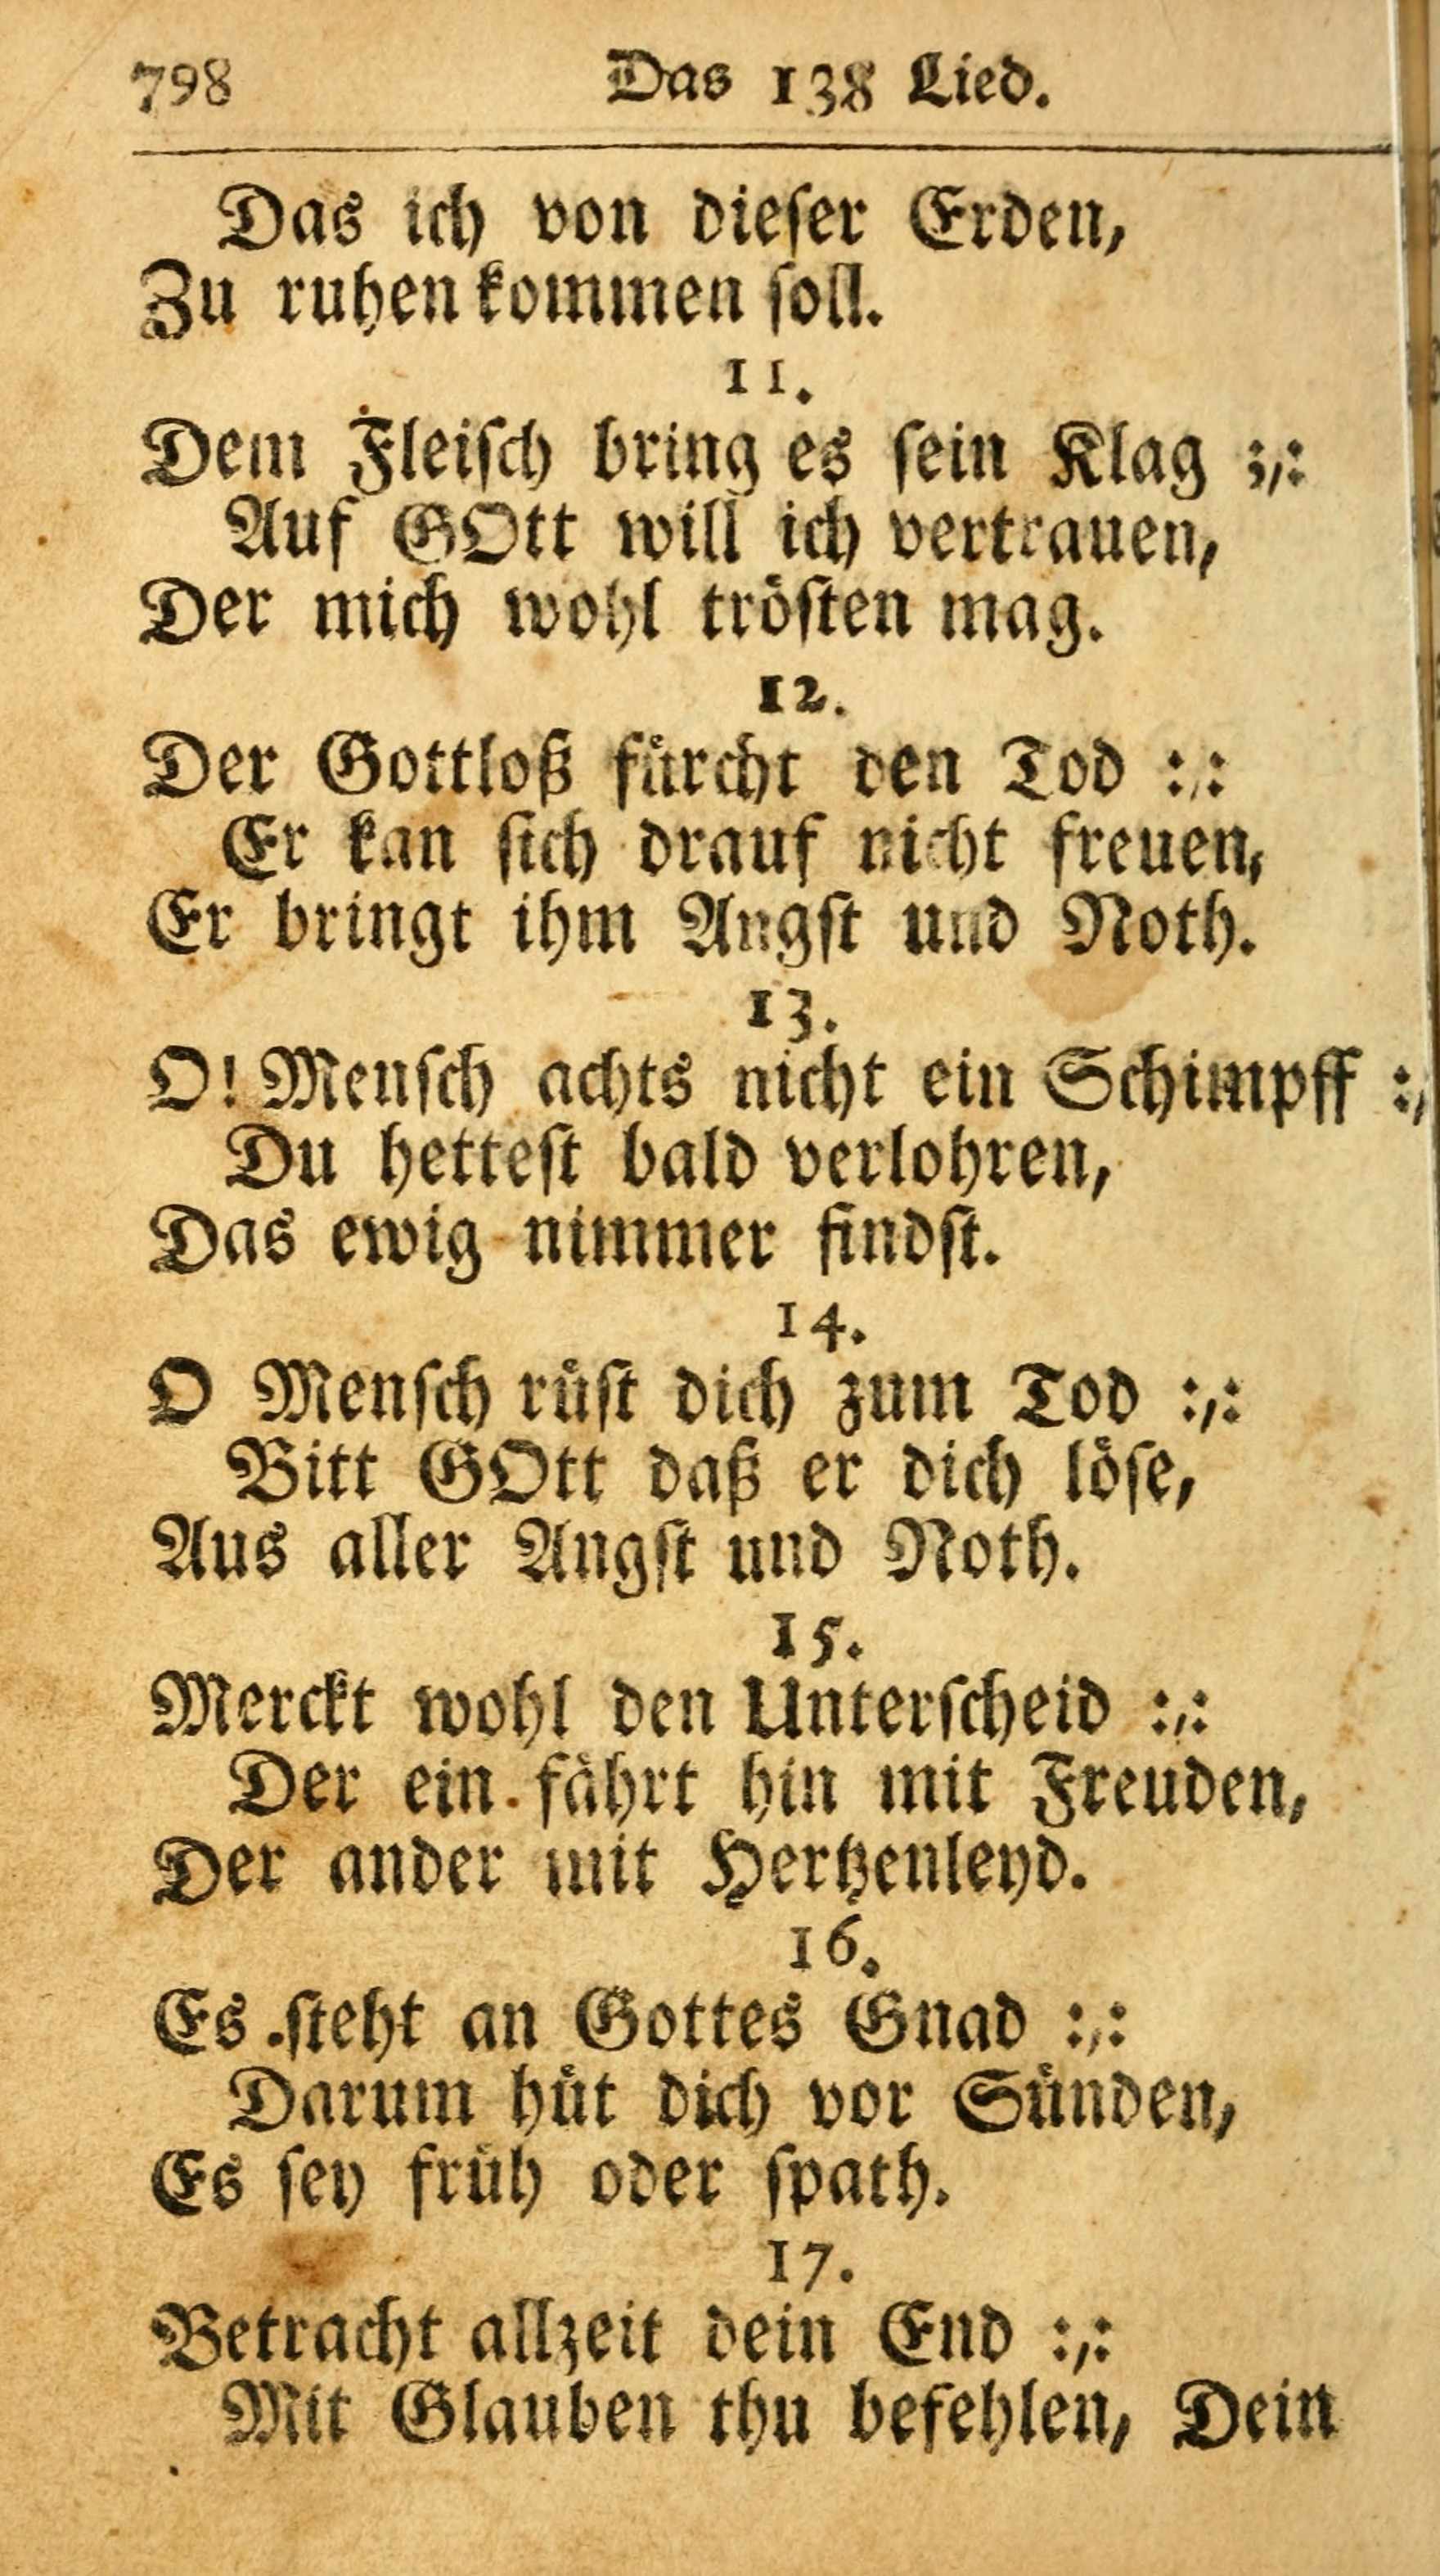 798 Das 138 Lied.
Das ich von dieser Erden,
Zu ruhen kommen soll.
11.
Dem Fleisch bring es sein Klag ;,:
Auf GOtt will ich vertrauen,
Der mich wohl trösten mag.
12.
Der Gottloß fürcht den Tod :,:
Er kan sich drauf nicht freuen,
Er bringt ihm Angst und Noth.
13.
O! Mensch achts nicht ein Schimpff :,
Du hettest bald verlohren,
Das ewig nimmer findst.
14.
O Mensch rüst dich zum Tod :,:
Bitt GOtt daß er dich löse,
Aus aller Angst und Noth.
15.
Merckt wohl den Unterscheid :,:
Der ein fährt hin mit Freuden,
Der ander mit Hertzenleyd.
16.
Es steht an Gottes Gnad :,:
Darum hüt dich vor Sünden,
Es sey früh oder spath.
17.
Betracht allzeit dein End :,:
Mit Glauben thu befehlen, Dein